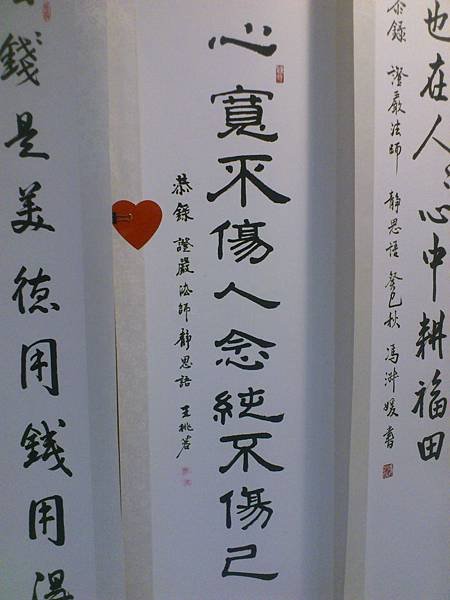 也在人人心中耕福田
恭錄 證嚴法師 靜思語 癸巳秋 馮 媛書
心寬不傷人念純不傷己
恭錄 證嚴法師靜思語 王桃
錢是美德用錢用